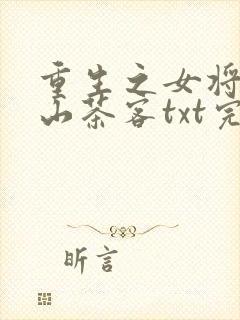 重生之女将
山茶客txt完
昕言